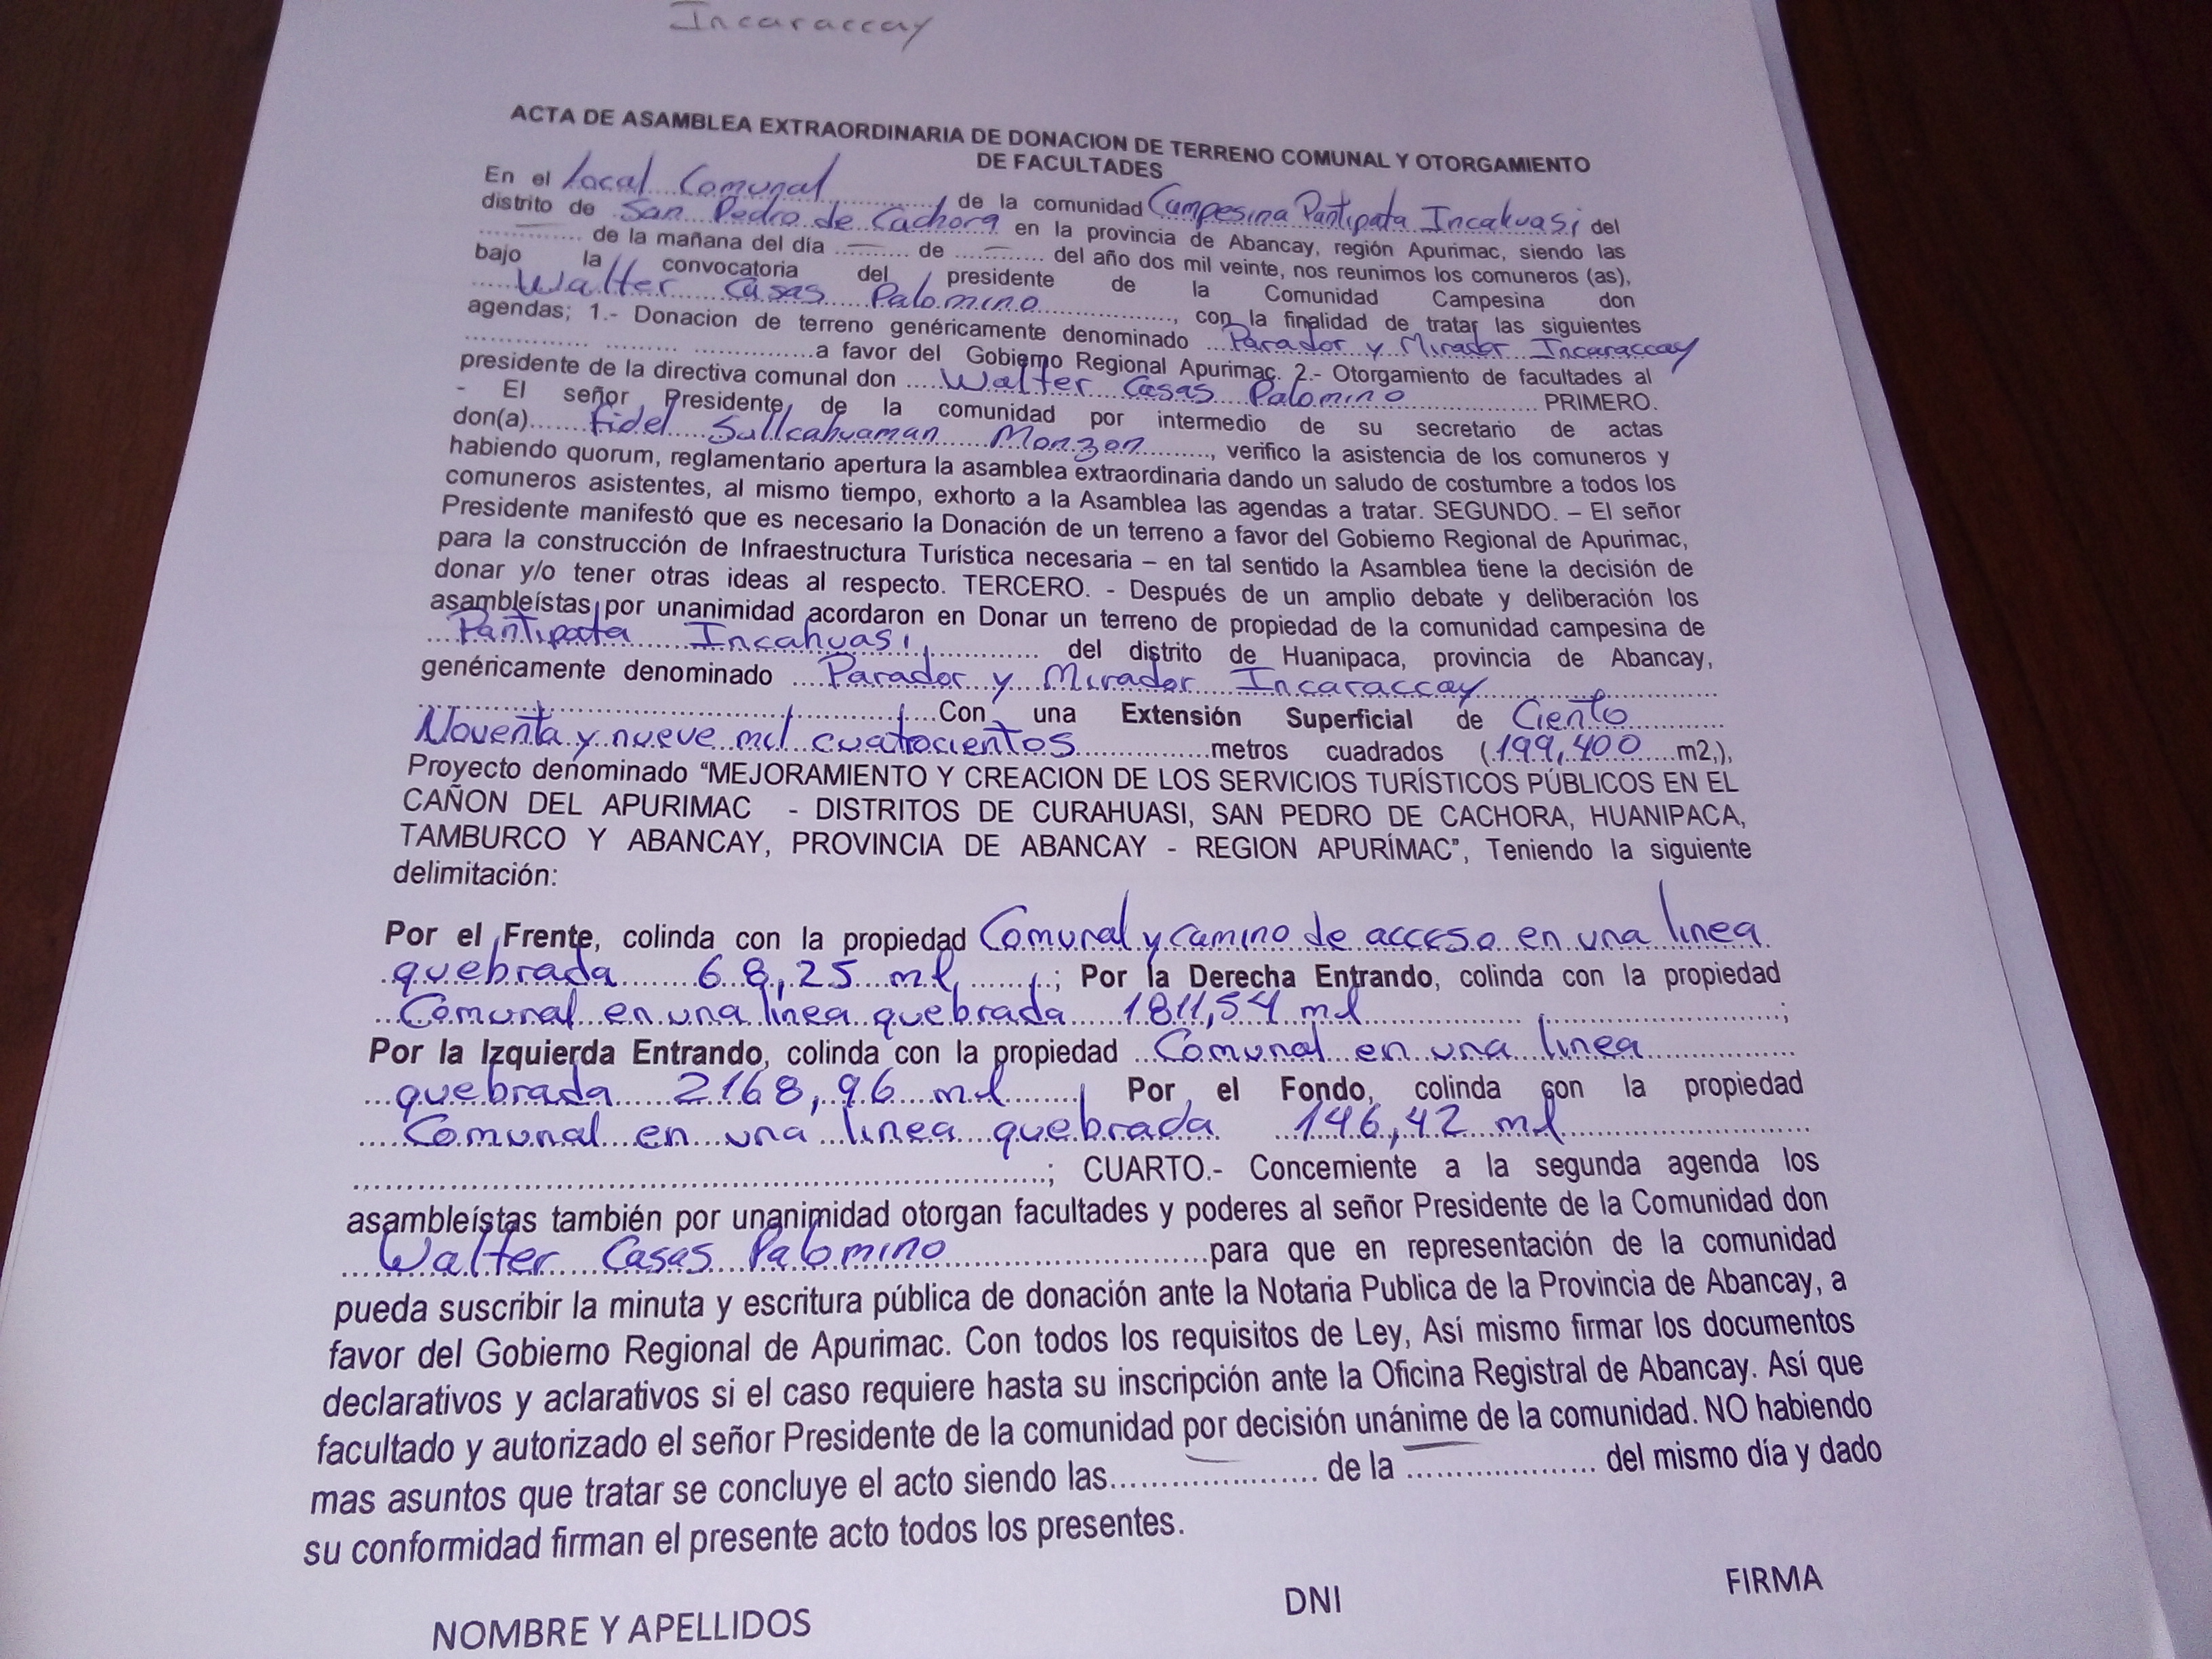 Incaraccay
ACTA DE ASAMBLEA EXTRAORDINARIA DE DONACION DE TERRENO COMUNAL Y OTORGAMIENTO
DE FACULTADES
En el Local Comunal .............. de la comunidad Campesina Pantipata Incahuasi del
distrito de San Pedro de Cachora en la provincia de Abancay, región Apurimac, siendo las
............ de la mañana del día .......... de ............ del año dos mil veinte, nos reunimos los comuneros (as),
bajo la convocatoria del presidente de la Comunidad Campesina don
.....Walter Casas Palomino.................., con la finalidad de tratar las siguientes
agendas; 1.- Donacion de terreno genéricamente denominado ...Parador y Mirador Incaraccay
............... ......... ...............a favor del Gobierno Regional Apurimac. 2.- Otorgamiento de facultades al
presidente de la directiva comunal don .....Walter Casas Palomino ................ PRIMERO.
- El señor Presidente de la comunidad por intermedio de su secretario de actas
don(a).......Fidel Sullcahuaman Monzon.........., verifico la asistencia de los comuneros y
habiendo quorum, reglamentario apertura la asamblea extraordinaria dando un saludo de costumbre a todos los
comuneros asistentes, al mismo tiempo, exhorto a la Asamblea las agendas a tratar. SEGUNDO. – El señor
Presidente manifestó que es necesario la Donación de un terreno a favor del Gobierno Regional de Apurimac,
para la construcción de Infraestructura Turística necesaria – en tal sentido la Asamblea tiene la decisión de
donar y/o tener otras ideas al respecto. TERCERO. - Después de un amplio debate y deliberación los
asambleístas por unanimidad acordaron en Donar un terreno de propiedad de la comunidad campesina de
....Pantipata Incahuasi.............. del distrito de Huanipaca, provincia de Abancay,
genéricamente denominado ....Parador y Mirador Incaraccay..................
......................................................Con una Extensión Superficial de Ciento
Noventa y nueve mil cuatrocientos................metros cuadrados (199,400....m2,),
Proyecto denominado “MEJORAMIENTO Y CREACION DE LOS SERVICIOS TURÍSTICOS PÚBLICOS EN EL
CAÑON DEL APURIMAC - DISTRITOS DE CURAHUASI, SAN PEDRO DE CACHORA, HUANIPACA,
TAMBURCO Y ABANCAY, PROVINCIA DE ABANCAY - REGION APURÍMAC”, Teniendo la siguiente
delimitación:
Por el Frente, colinda con la propiedad Comunal y camino de acceso en una linea
quebrada 68,25 ml ..........; Por la Derecha Entrando, colinda con la propiedad
...Comunal en una linea quebrada 1811,54 ml.................................;
Por la Izquierda Entrando, colinda con la propiedad ...Comunal en una linea...............
...quebrada 2168,96 ml......... Por el Fondo, colinda con la propiedad
....Comunal en una linea quebrada 146,42 ml.........................
....................................................................; CUARTO.- Concerniente a la segunda agenda los
asambleístas también por unanimidad otorgan facultades y poderes al señor Presidente de la Comunidad don
...Walter Casas Palomino..........................para que en representación de la comunidad
pueda suscribir la minuta y escritura pública de donación ante la Notaria Publica de la Provincia de Abancay, a
favor del Gobierno Regional de Apurimac. Con todos los requisitos de Ley, Así mismo firmar los documentos
declarativos y aclarativos si el caso requiere hasta su inscripción ante la Oficina Registral de Abancay. Así que
facultado y autorizado el señor Presidente de la comunidad por decisión unánime de la comunidad. NO habiendo
mas asuntos que tratar se concluye el acto siendo las..................... de la .................... del mismo día y dado
su conformidad firman el presente acto todos los presentes.
NOMBRE Y APELLIDOS DNI FIRMA